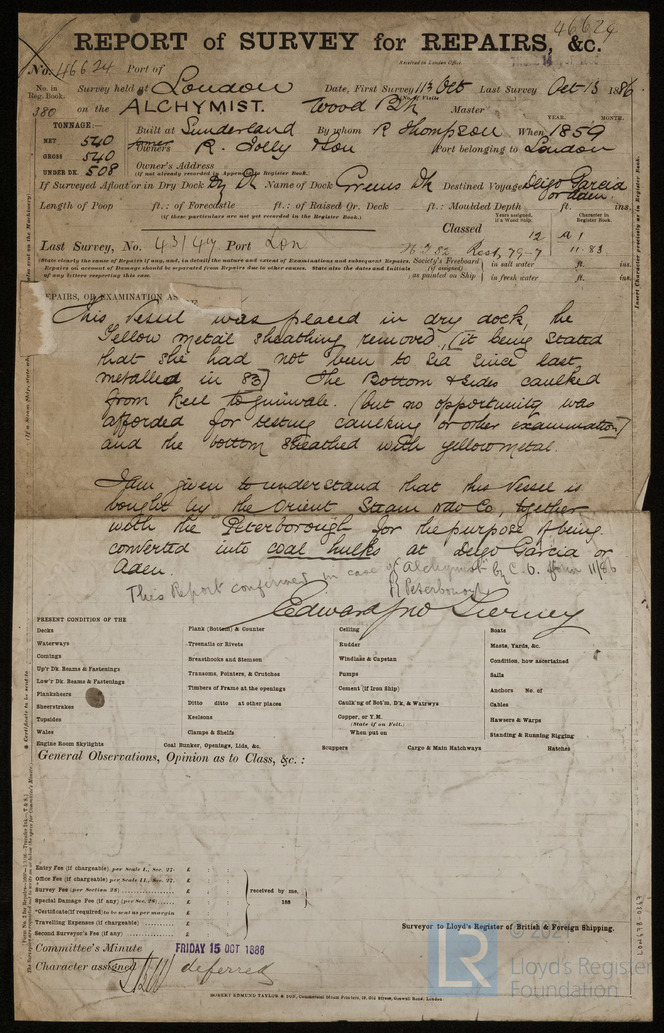 46624
REPORT of SURVEY for REPAIRS, &c.
No. 46624 Port of
Received in London Office
No. in Reg. Book. Survey held at London Date, First Survey 13 Oct Last Survey Oct 13 1886
380 on the ALCHYMIST. Wood Bk Master
TONNAGE:— YEAR. MONTH.
NET 540 Built at Sunderland By whom R Thompson When 1859
GROSS 540 Owners R. Jolly & Son Port belonging to London
UNDER DK. 508 Owner's Address
(if not already recorded in Appendix to Register Book.)
If Surveyed Afloat or in Dry Dock Dry Dk Name of Dock Greens Dk Destined Voyage Deigo Garcia or Aden.
Length of Poop ft.: of Forecastle ft.: of Raised Qr. Deck ft.: Moulded Depth ft. ins.
(if these particulars are not yet recorded in the Register Book.)
Years assigned, if a Wood Ship. Character in Register Book.
Classed 12 A 1
Last Survey, No. 43147 Port Lon Rest. 79-7 11.83
(State clearly the cause of Repairs if any, and, in detail the nature and extent of Examinations and subsequent Repairs. Society's Freeboard in salt water ft. ins.
Repairs on account of Damage should be separated from Repairs due to other causes. State also the dates and Initials (if assigned)
of any letters respecting this case. as painted on Ship in fresh water ft. ins.
EPAIRS, OR EXAMINATION AS
This Vessel was placed in dry dock, the
Yellow metal sheathing removed, (it being stated
that she had not been to Sea since last
metalled in 83) The Bottom & sides caulked
from keel to gunwale. (but no opportunity was
afforded for testing caulking or other examination)
and the bottom sheathed with yellow metal.
I am given to understand that this Vessel is
bought by the Orient Steam Nav Co, together
with the Peterborough for the purpose of being
converted into coal hulks at Deigo Garcia or
Aden.
This Report confirmed in case of Alchymist by C.O. from 11/86
R Peterborough
Edward Jno Tierney
PRESENT CONDITION OF THE
Decks
Waterways
Comings
Up'r Dk. Beams & Fastenings
Low'r Dk. Beams & Fastenings
Planksheers
Sheerstrakes
Topsides
Wales
Engine Room Skylights
Plank (Bottom) & Counter
Treenails or Rivets
Breasthooks and Stemson
Transoms, Pointers, & Crutches
Timbers of Frame at the openings
Ditto ditto at other places
Keelsons
Clamps & Shelfs
Coal Bunker, Openings, Lids, &c.
Ceiling
Rudder
Windlass & Capstan
Pumps
Cement (if Iron Ship)
Caulk'ng of Bot'm, D'k, & Watrwys
Copper, or Y.M.
(State if on Felt.)
When put on
Scuppers
Boats
Masts, Yards, &c.
Condition, how ascertained
Sails
Anchors No. of
Cables
Hawsers & Warps
Standing & Running Rigging
Cargo & Main Hatchways
Hatches
General Observations, Opinion as to Class, &c. :
Entry Fee (if chargeable) per Scale I., Sec. 27. £ : :
Office Fee (if chargeable) per Scale II., Sec. 27. £ : :
Survey Fee (per Section 28) £ : :
Special Damage Fee (if any) (per Sec. 28) £ : :
*Certificate (if required) to be sent as per margin £ : :
Travelling Expenses (if chargeable) £ : :
Second Surveyor's Fee (if any) £ : :
received by me,
188
Surveyor to Lloyd's Register of British & Foreign Shipping.
Committee's Minute FRIDAY 15 OCT 1886
Character assigned deferred
ROBERT EDMUND TAYLOR & SON, Commercial Steam Printers, 19, Old Street, Goswell Road, London.
LR
© 2021
Lloyd's Register
Foundation
LON678-0167